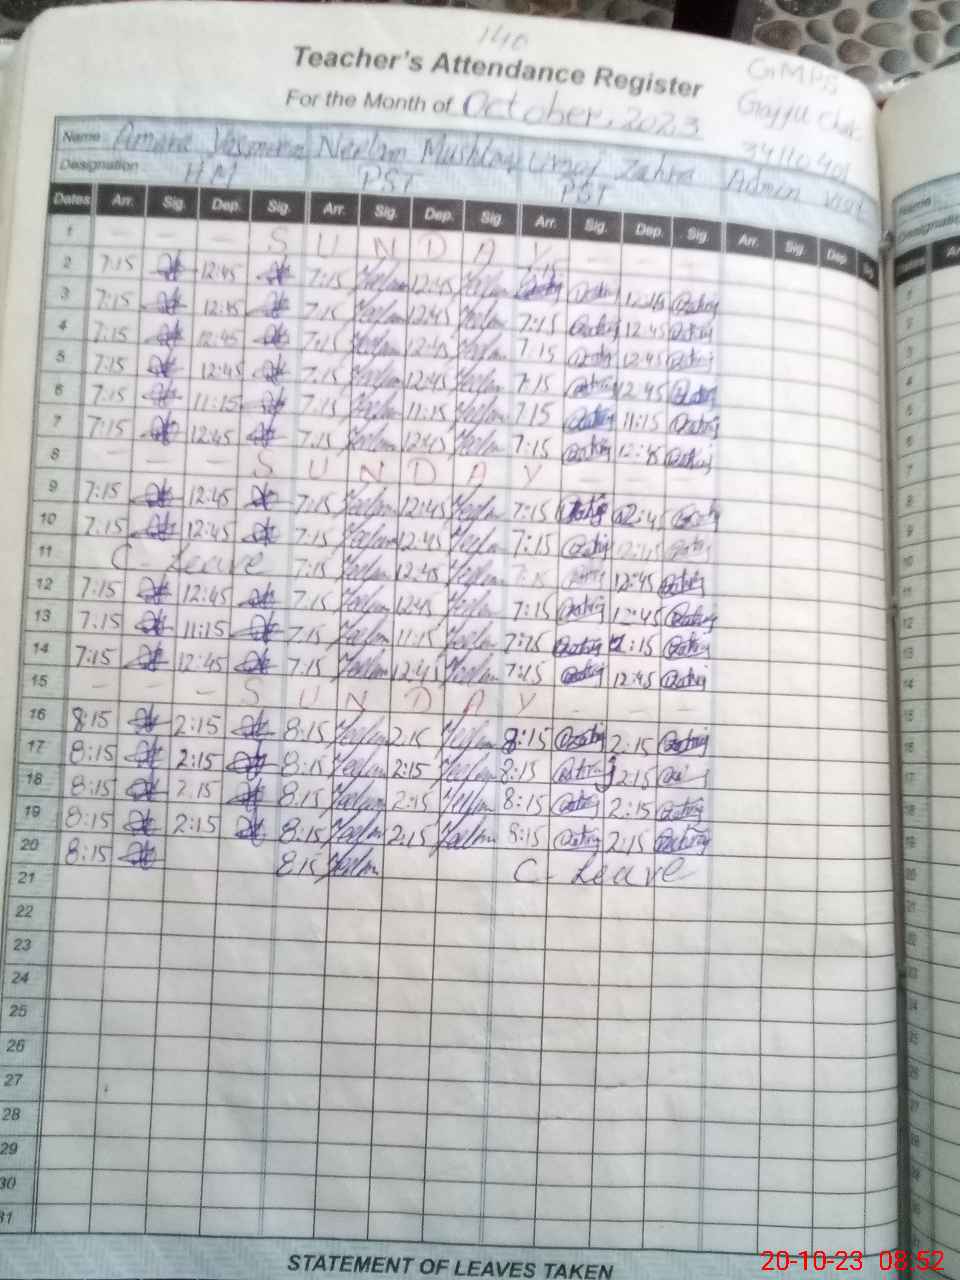 140
Teacher's Attendance Register
GMPS
For the Month of October, 2023
Gajju Chak
34110401
Name Amara Yasmeen Neelam Mushtaq Urooj Zahra
Designation HM PST PST Admin Visit
Dates Arr. Sig. Dep. Sig. Arr. Sig. Dep. Sig. Arr. Sig. Dep. Sig. Arr. Sig. Dep. Sig.
1 — — — S U N D A Y — — —
2 7:15 12:45 7:15 Neelam 12:45 Neelam 7:15 12:45
3 7:15 12:45 7:15 Neelam 12:45 Neelam 7:15 12:45
4 7:15 12:45 7:15 Neelam 12:45 Neelam 7:15 12:45
5 7:15 12:45 7:15 Neelam 12:45 Neelam 7:15 12:45
6 7:15 11:15 7:15 Neelam 11:15 Neelam 7:15 11:15
7 7:15 12:45 7:15 Neelam 12:45 Neelam 7:15 12:45
8 — — — S U N D A Y — — —
9 7:15 12:45 7:15 Neelam 12:45 Neelam 7:15 12:45
10 7:15 12:45 7:15 Neelam 12:45 Neelam 7:15 12:45
11 C - Leave 7:15 Neelam 12:45 Neelam 7:15 12:45
12 7:15 12:45 7:15 Neelam 12:45 Neelam 7:15 12:45
13 7:15 11:15 7:15 Neelam 11:15 Neelam 7:15 11:15
14 7:15 12:45 7:15 Neelam 12:45 Neelam 7:15 12:45
15 — — — S U N D A Y — — —
16 8:15 2:15 8:15 Neelam 2:15 Neelam 8:15 2:15
17 8:15 2:15 8:15 Neelam 2:15 Neelam 8:15 2:15
18 8:15 2:15 8:15 Neelam 2:15 Neelam 8:15 2:15
19 8:15 2:15 8:15 Neelam 2:15 Neelam 8:15 2:15
20 8:15 8:15 Neelam C - Leave
21
22
23
24
25
26
27
28
29
30
31
STATEMENT OF LEAVES TAKEN
20-10-23 08:52